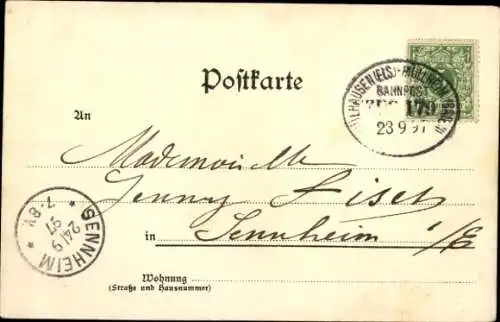 Postkarte
MÜLHAUSEN (ELS)-MÜLLHEIM (BADEN)
BAHNPOST
ZUG 179
23 9 97
An
Mademoiselle
Jenny
in Sennheim i/E
SENNHEIM
24/9 97
7-8V
Wohnung
(Straße und Hausnummer)